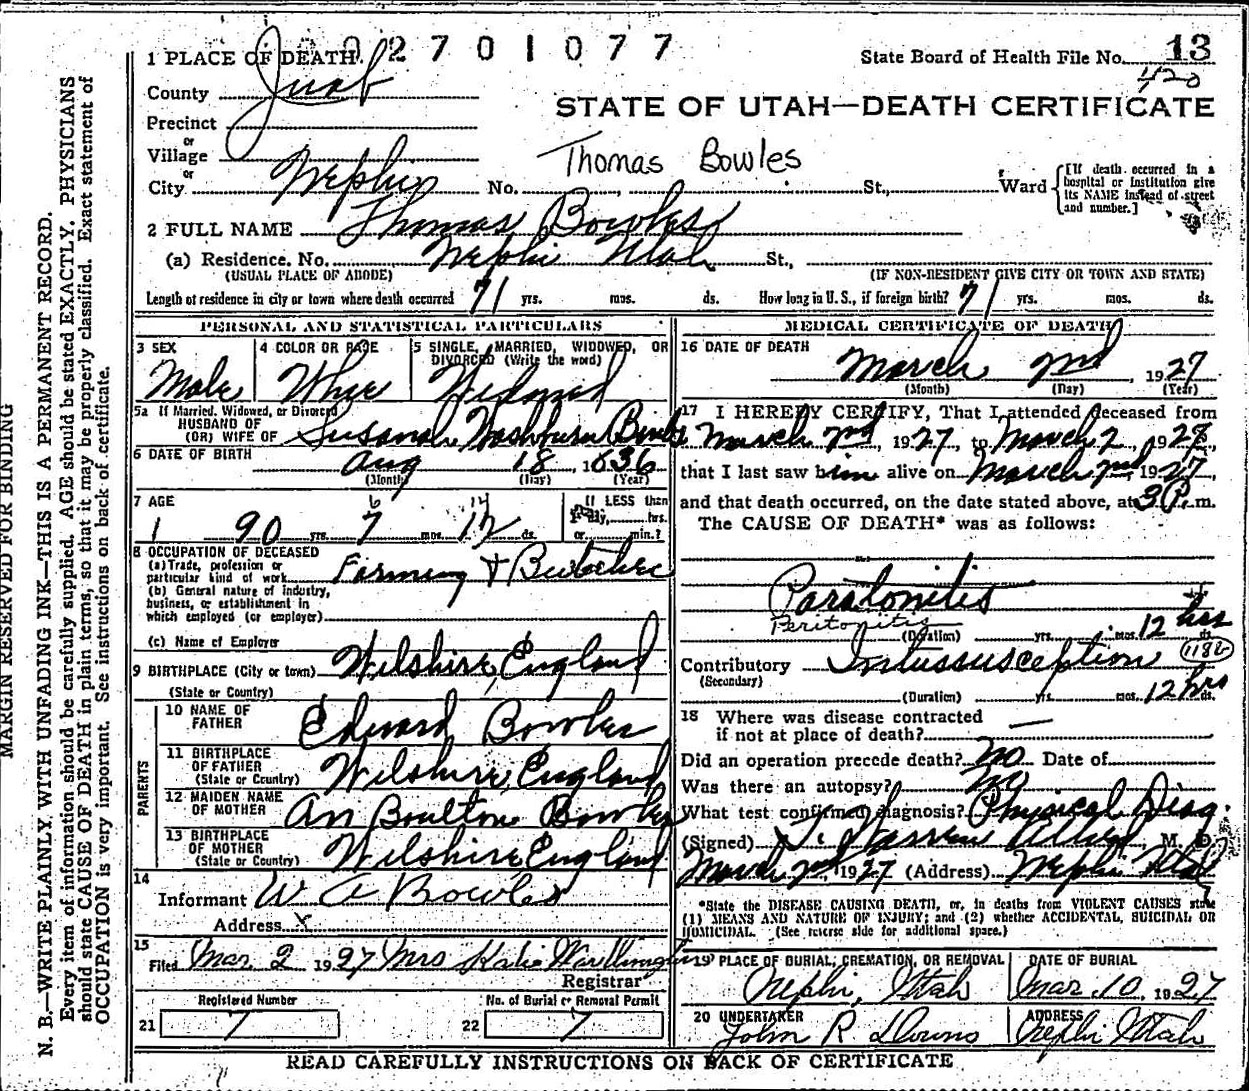 1 PLACE OF DEATH. 02701077
State Board of Health File No. 13
420
County Juab
STATE OF UTAH—DEATH CERTIFICATE
Precinct
or
Village
Thomas Bowles
or
City Nephi No. St., Ward
[If death occurred in a hospital or institution give its NAME instead of street and number.]
2 FULL NAME Thomas Bowles
(a) Residence. No. Nephi Utah St.,
(USUAL PLACE OF ABODE) (IF NON-RESIDENT GIVE CITY OR TOWN AND STATE)
Length of residence in city or town where death occurred 71 yrs. mos. ds. How long in U. S., if foreign birth? 71 yrs. mos. ds.
PERSONAL AND STATISTICAL PARTICULARS
3 SEX
Male
4 COLOR OR RACE
5 SINGLE, MARRIED, WIDOWED, OR DIVORCED (Write the word)
Widowed
5a If Married, Widowed, or Divorced
HUSBAND OF
(OR) WIFE OF Susanah Washburn Bowles
6 DATE OF BIRTH Aug 18, 1836
(Month) (Day) (Year)
7 AGE 6 14
1 90 yrs. 7 mos. 12 ds.
If LESS than
1 day, hrs.
or min.?
8 OCCUPATION OF DECEASED
(a) Trade, profession or
particular kind of work Farming & Butcher
(b) General nature of industry,
business, or establishment in
which employed (or employer)
(c) Name of Employer
9 BIRTHPLACE (City or town) Wilshire, England
(State or Country)
PARENTS
10 NAME OF
FATHER Edward Bowles
11 BIRTHPLACE
OF FATHER
(State or Country) Wilshire, England
12 MAIDEN NAME
OF MOTHER An Boulton Bowles
13 BIRTHPLACE
OF MOTHER
(State or Country) Wilshire, England
14
Informant W A Bowles
Address x
15
Filed Mar 2 1927 Mrs Katie
Registrar
Registered Number
21 7
No. of Burial or Removal Permit
22 7
MEDICAL CERTIFICATE OF DEATH
16 DATE OF DEATH
March 2nd, 1927
(Month) (Day) (Year)
17 I HEREBY CERTIFY, That I attended deceased from
March 2nd, 1927, to March 2, 1927,
that I last saw him alive on March 2nd, 1927,
and that death occurred, on the date stated above, at 3 P. m.
The CAUSE OF DEATH* was as follows:
Paratonitis
Peritonitis
(Duration) yrs. mos. 12 hrs ds.
Contributory Intussusception 118b
(Secondary)
(Duration) yrs. mos. 12 hrs ds.
18 Where was disease contracted
if not at place of death? —
Did an operation precede death? No Date of
Was there an autopsy? No
What test confirmed diagnosis? Physical Diag.
(Signed) Warren Allred M. D.
March 2nd, 1927 (Address) Nephi Utah
*State the DISEASE CAUSING DEATH, or, in deaths from VIOLENT CAUSES state
(1) MEANS AND NATURE OF INJURY; and (2) whether ACCIDENTAL, SUICIDAL OR
HOMICIDAL. (See reverse side for additional space.)
19 PLACE OF BURIAL, CREMATION, OR REMOVAL
Nephi, Utah
DATE OF BURIAL
Mar. 10, 1927
20 UNDERTAKER
John R Downs
ADDRESS
Nephi Utah
READ CAREFULLY INSTRUCTIONS ON BACK OF CERTIFICATE
MARGIN RESERVED FOR BINDING
N. B.—WRITE PLAINLY, WITH UNFADING INK—THIS IS A PERMANENT RECORD.
Every item of information should be carefully supplied. AGE should be stated EXACTLY. PHYSICIANS
should state CAUSE OF DEATH in plain terms, so that it may be properly classified. Exact statement of
OCCUPATION is very important. See instructions on back of certificate.